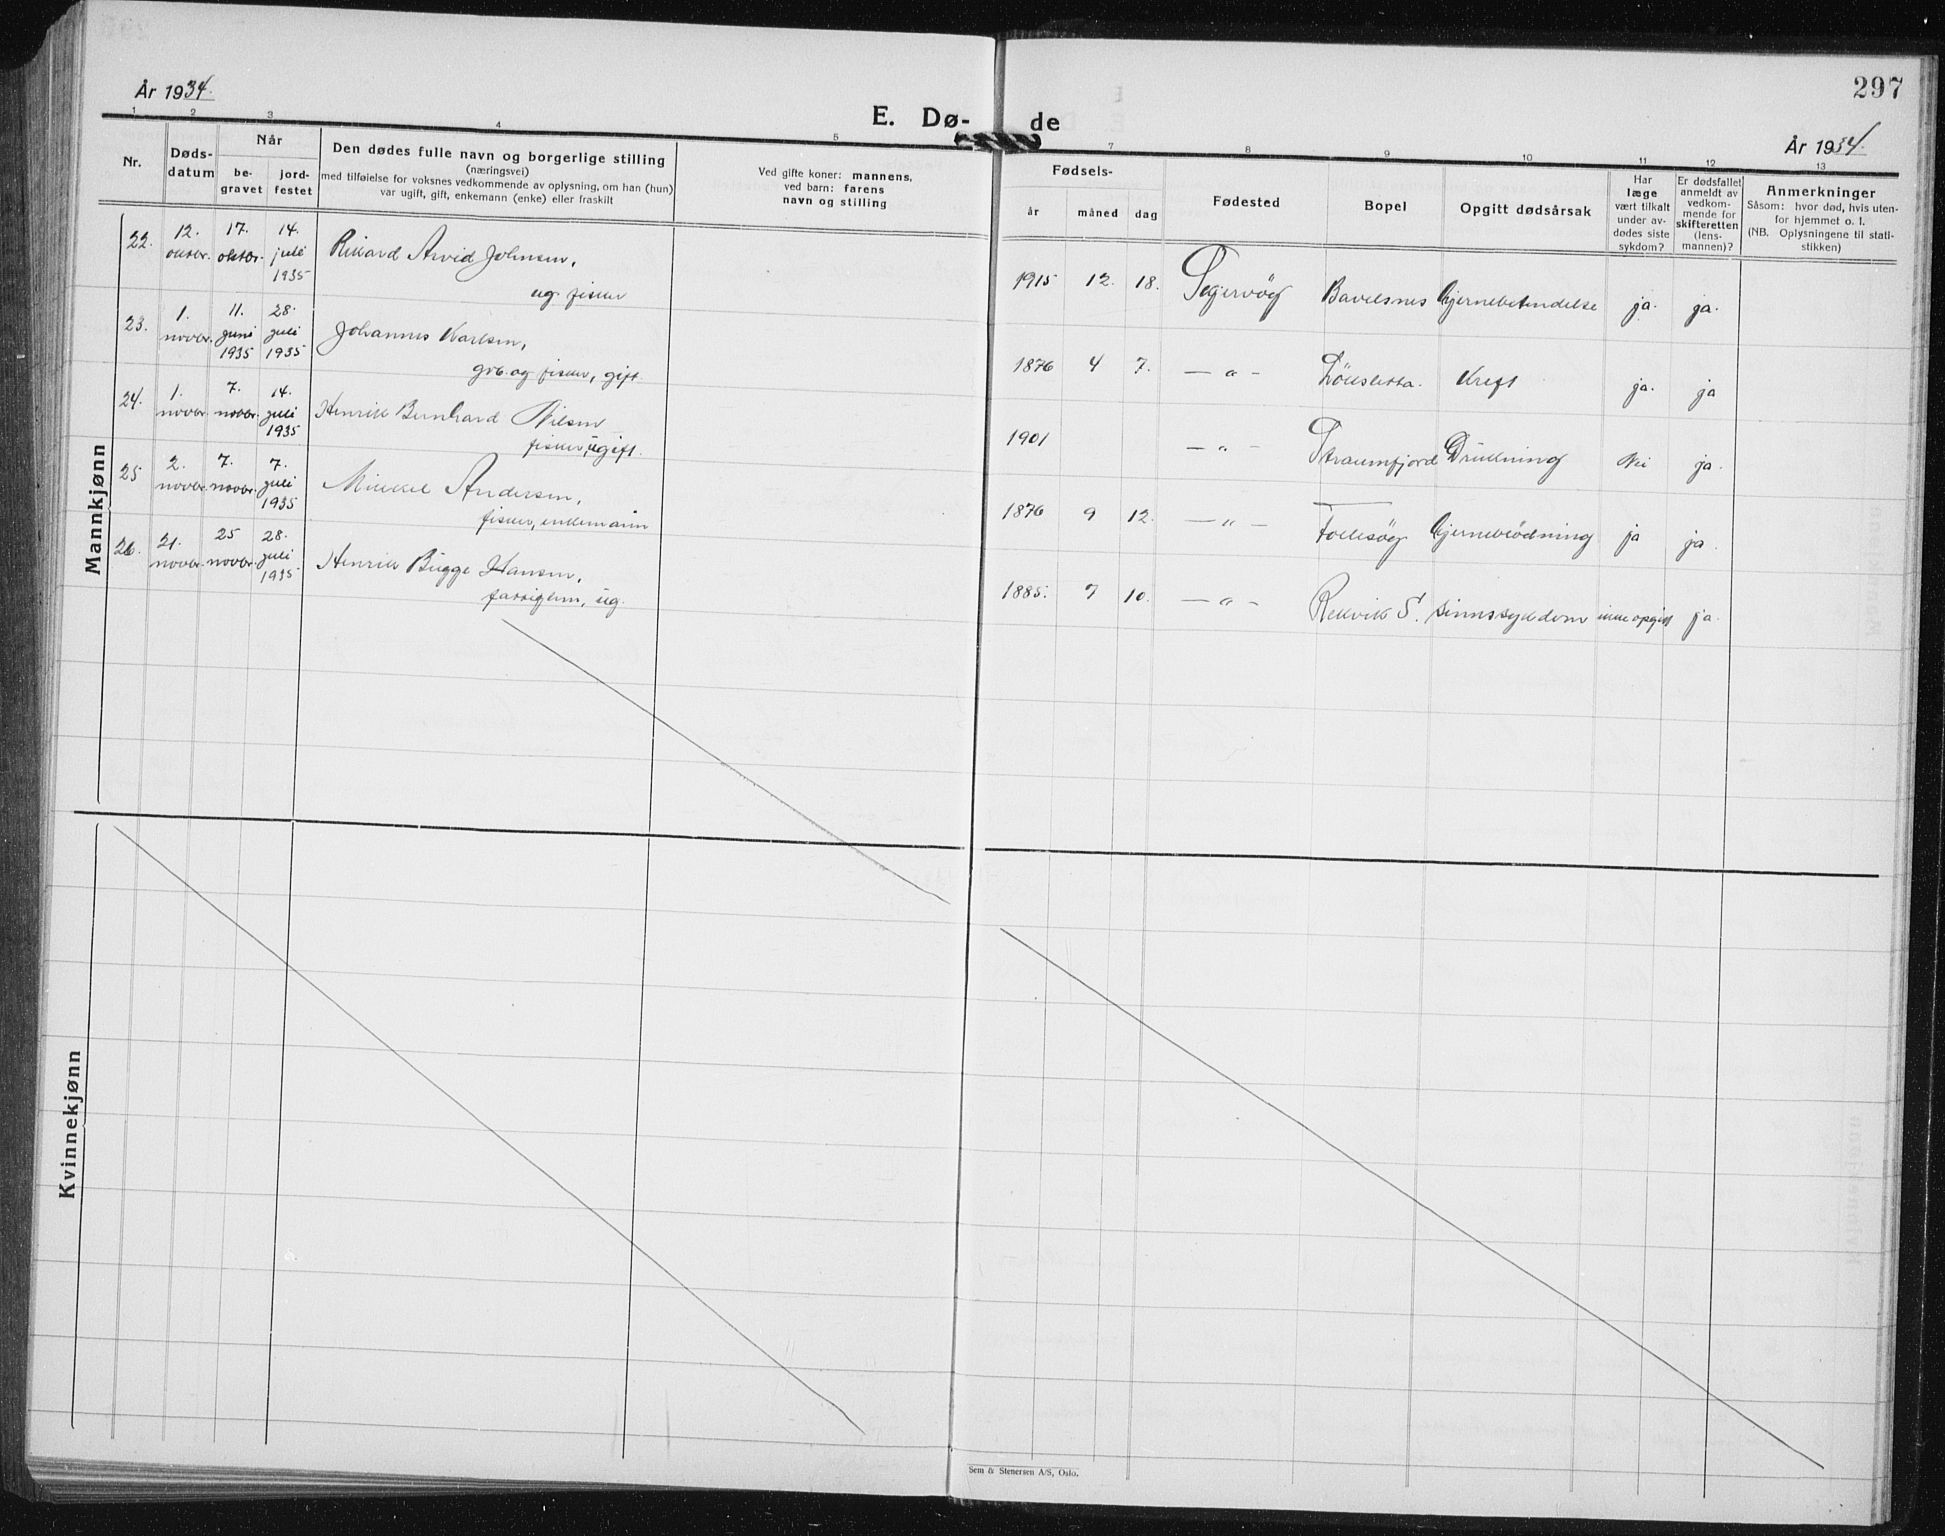 297
År 1934.
E. Dø-de
År 1934.
1 2 3 4 5 7 8 9 10 11 12 13
Nr.
Døds-
datum
Når
be-
gravet
jord-
festet
Den dødes fulle navn og borgerlige stilling
(næringsvei)
med tilføielse for voksnes vedkommende av oplysning, om han (hun)
var ugift, gift, enkemann (enke) eller fraskilt
Ved gifte koner: mannens,
ved barn: farens
navn og stilling
Fødsels-
år måned dag
Fødested
Bopel
Opgitt dødsårsak
Har
læge
vært tilkalt
under av-
dødes siste
sykdom?
Er dødsfallet
anmeldt av
vedkom-
mende for
skifteretten
(lens-
mannen)?
Anmerkninger
Såsom: hvor død, hvis uten-
for hjemmet o. l.
(NB. Oplysningene til stati-
stikken)
Mannkjønn
22. 12. oktbr. 17. oktbr. 14. juli 1935 Rikard Arvid Johnsen,
ug. fisker
1915 12. 18. Bavelsnes hjernebetendelse ja. ja.
23. 1. novbr. 11. juni 1935 28. juli 1935 Johannes Karlsen,
gvb. og fisker, gift.
1876 4 7. — " — Kreft ja. ja
24. 1. novbr. 7. novbr. 14. juli 1935 Henrik Bernhard Nilsen
fisker, ugift.
1901 — " — Straumfjord Drukning Nei ja.
25 2. novbr. 7. novbr. 7. juli 1935 Mikkel Andersen,
fisker, enkemann
1876 9 12. — " — Follesøy hjerneblødning ja ja.
26. 21. novbr. 25 novbr. 28. juli 1935 Henrik Bugge Hansen,
fattiglem, ug.
1885. 7 10. — " — Rekvik S. sinnssykdom ikke opgitt ja.
Kvinnekjønn
Sem & Stenersen A/S, Oslo.